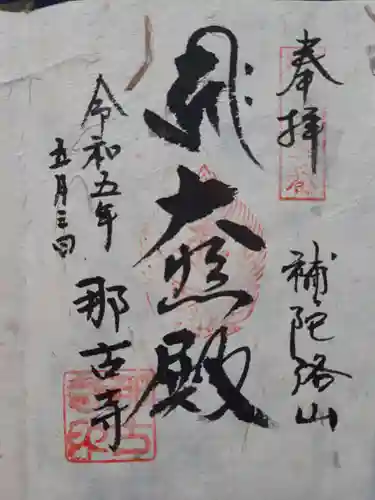 奉拝
補陀洛山
大悲殿
令和五年
五月三日
那古寺